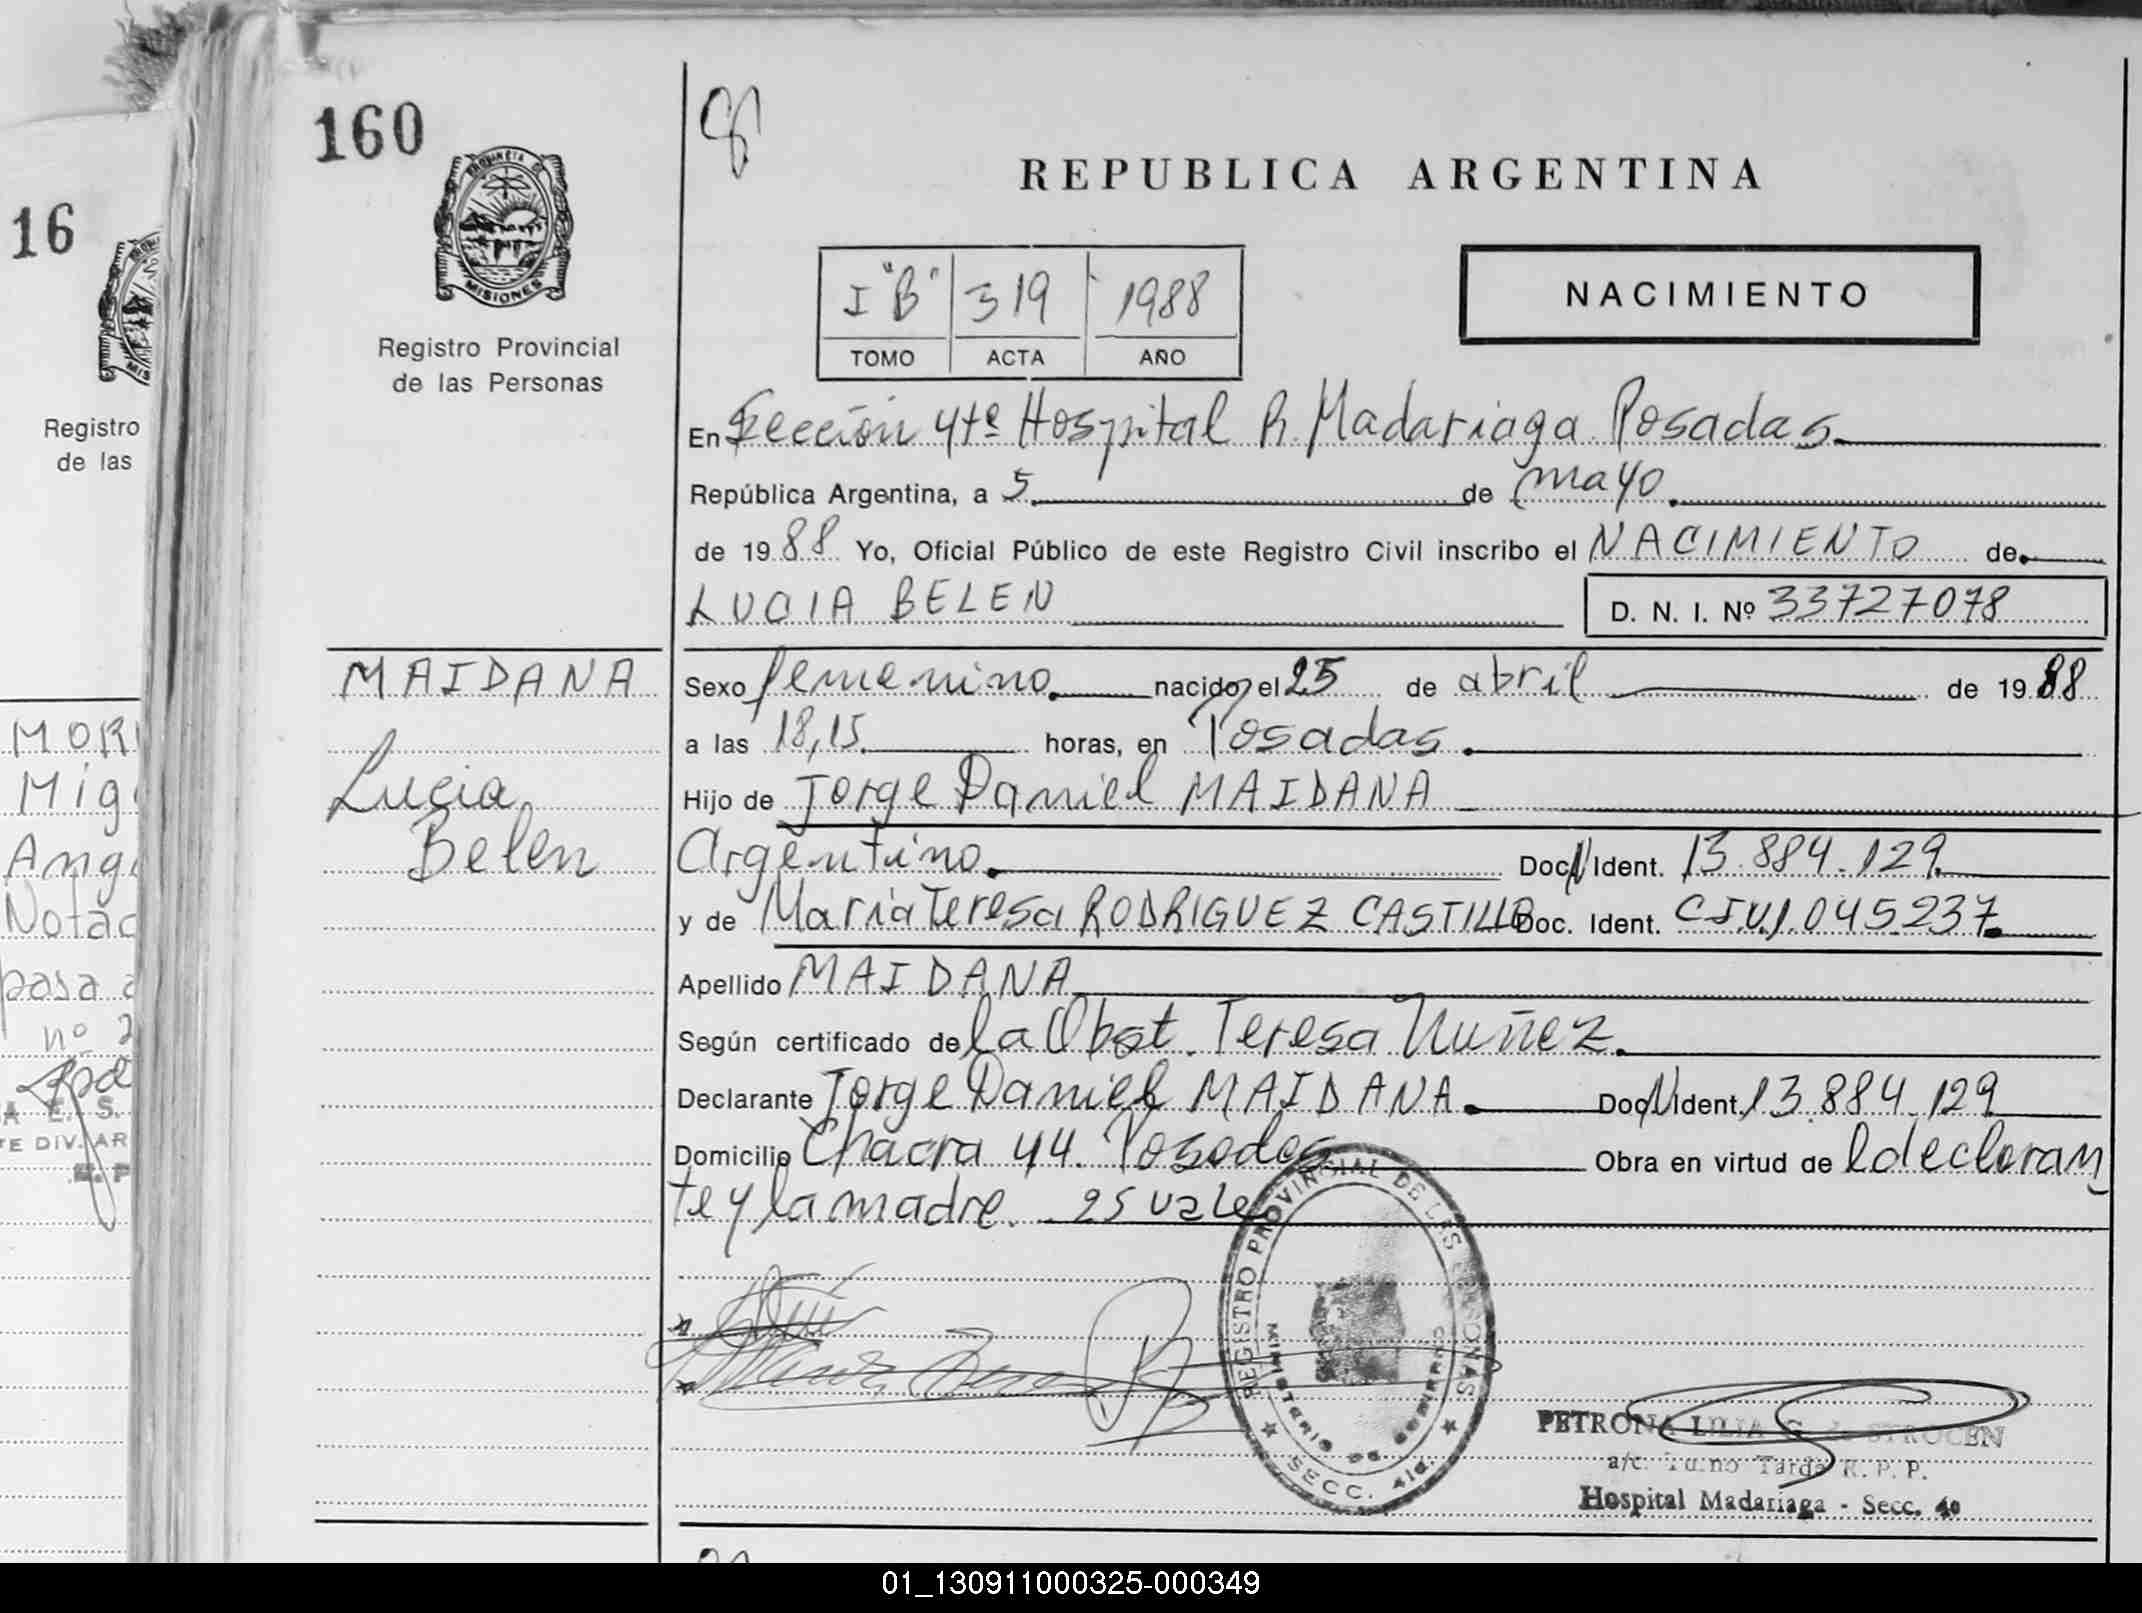 160
PROVINCIA D
MISIONES
Registro Provincial
de las Personas
REPUBLICA ARGENTINA
I "B" 319 1988
TOMO ACTA AÑO
NACIMIENTO
En Sección 4ta Hospital R. Madariaga Posadas
República Argentina, a 5 de mayo
de 1988 Yo, Oficial Público de este Registro Civil inscribo el NACIMIENTO de
LUCIA BELEN D. N. I. Nº 33727078
MAIDANA
Lucia
Belen
Sexo femenino nacido el 25 de abril de 1988
a las 18,15 horas, en Posadas
Hijo de Jorge Daniel MAIDANA
Argentino Doc. Ident. 13.884.129
y de María Teresa RODRIGUEZ CASTILLO Doc. Ident. 045237
Apellido MAIDANA
Según certificado de la Obst. Teresa Nuñez
Declarante Jorge Daniel MAIDANA Doc. Ident. 13.884.129
Domicilio Chacra 44. Posadas Obra en virtud de l declaran
te y la madre. 25 vale
REGISTRO PROVINCIAL DE LAS PERSONAS
MINISTERIO DE GOBIERNO
SECC. 4ta.
PETRONA LILIA G. de STROCEN
a/c. Turno Tarde R. P. P.
Hospital Madariaga - Secc. 4º
16
MIS
Registro
de las
MOR
Mig
Ang
Notac
pasa a
nº 2
E. S.
TE DIV. AR
01_130911000325-000349